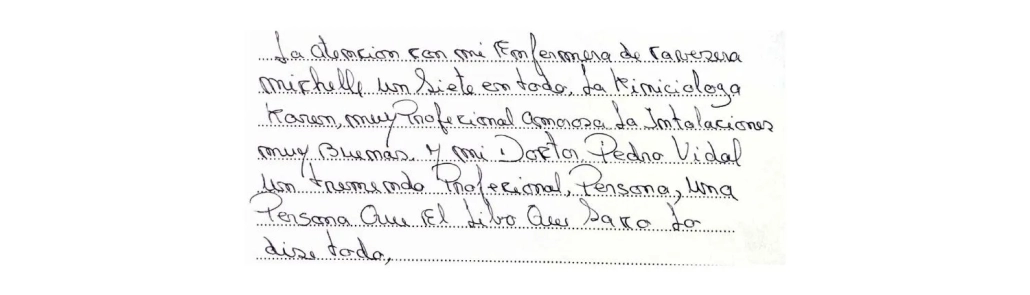 La atencion con mi Enfermera de cavezera
michelle un Siete en todo, La Kiniciologa
Karen, muy Profecional amorosa La Intalaciones
muy Buenas. Y mi Doctor Pedro Vidal
un tremendo Profecional, Persona, una
Persona Que El Libo Que Saco Lo
dise todo,